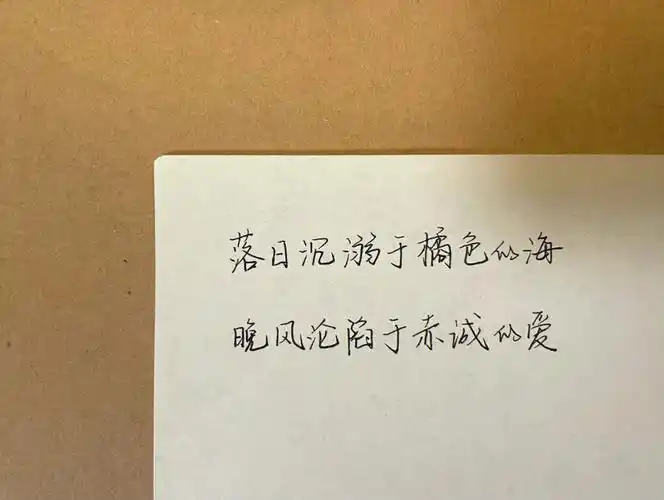 落日沉溺于橘色的海
晚风沦陷于赤诚的爱